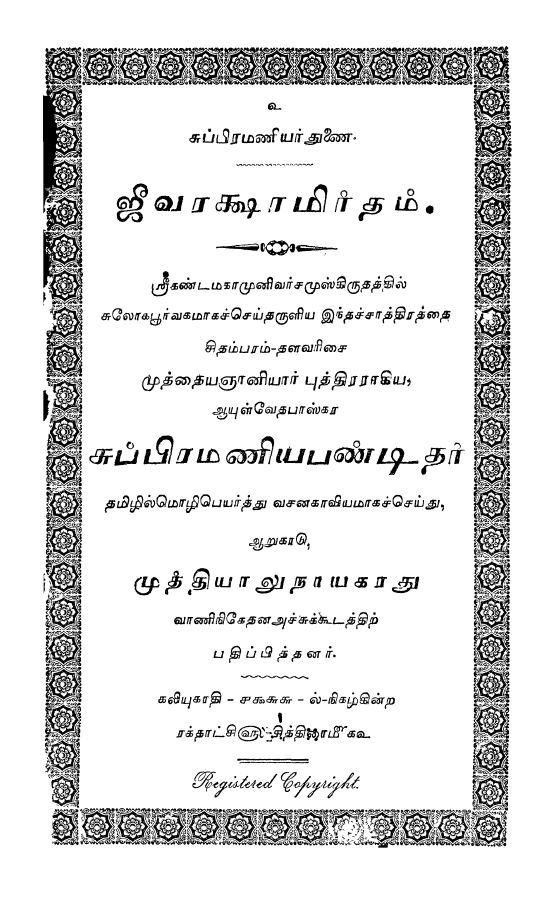 உ
சுப்பிரமணியர்துணை.
ஜீவரக்ஷாமிர்தம்.
ஸ்ரீகண்டமகாமுனிவர்சமுஸ்கிருதத்தில்
சுலோகபூர்வகமாகச்செய்தருளிய இந்தச்சாத்திரத்தை
சிதம்பரம்-தளவரிசை
முத்தையஞானியார் புத்திரராகிய,
ஆயுள்வேதபாஸ்கர
சுப்பிரமணியபண்டிதர்
தமிழில்மொழிபெயர்த்து வசனகாவியமாகச்செய்து,
ஆறுகாடு,
முத்தியாலுநாயகரது
வாணிநிகேதனஅச்சுக்கூடத்திற்
பதிப்பித்தனர்.
கலியுகாதி - ௪௯௮௬ - ல்-நிகழ்கின்ற
ரக்தாட்சி௵-சித்திரை௴ ௧௨
Registered Copyright.